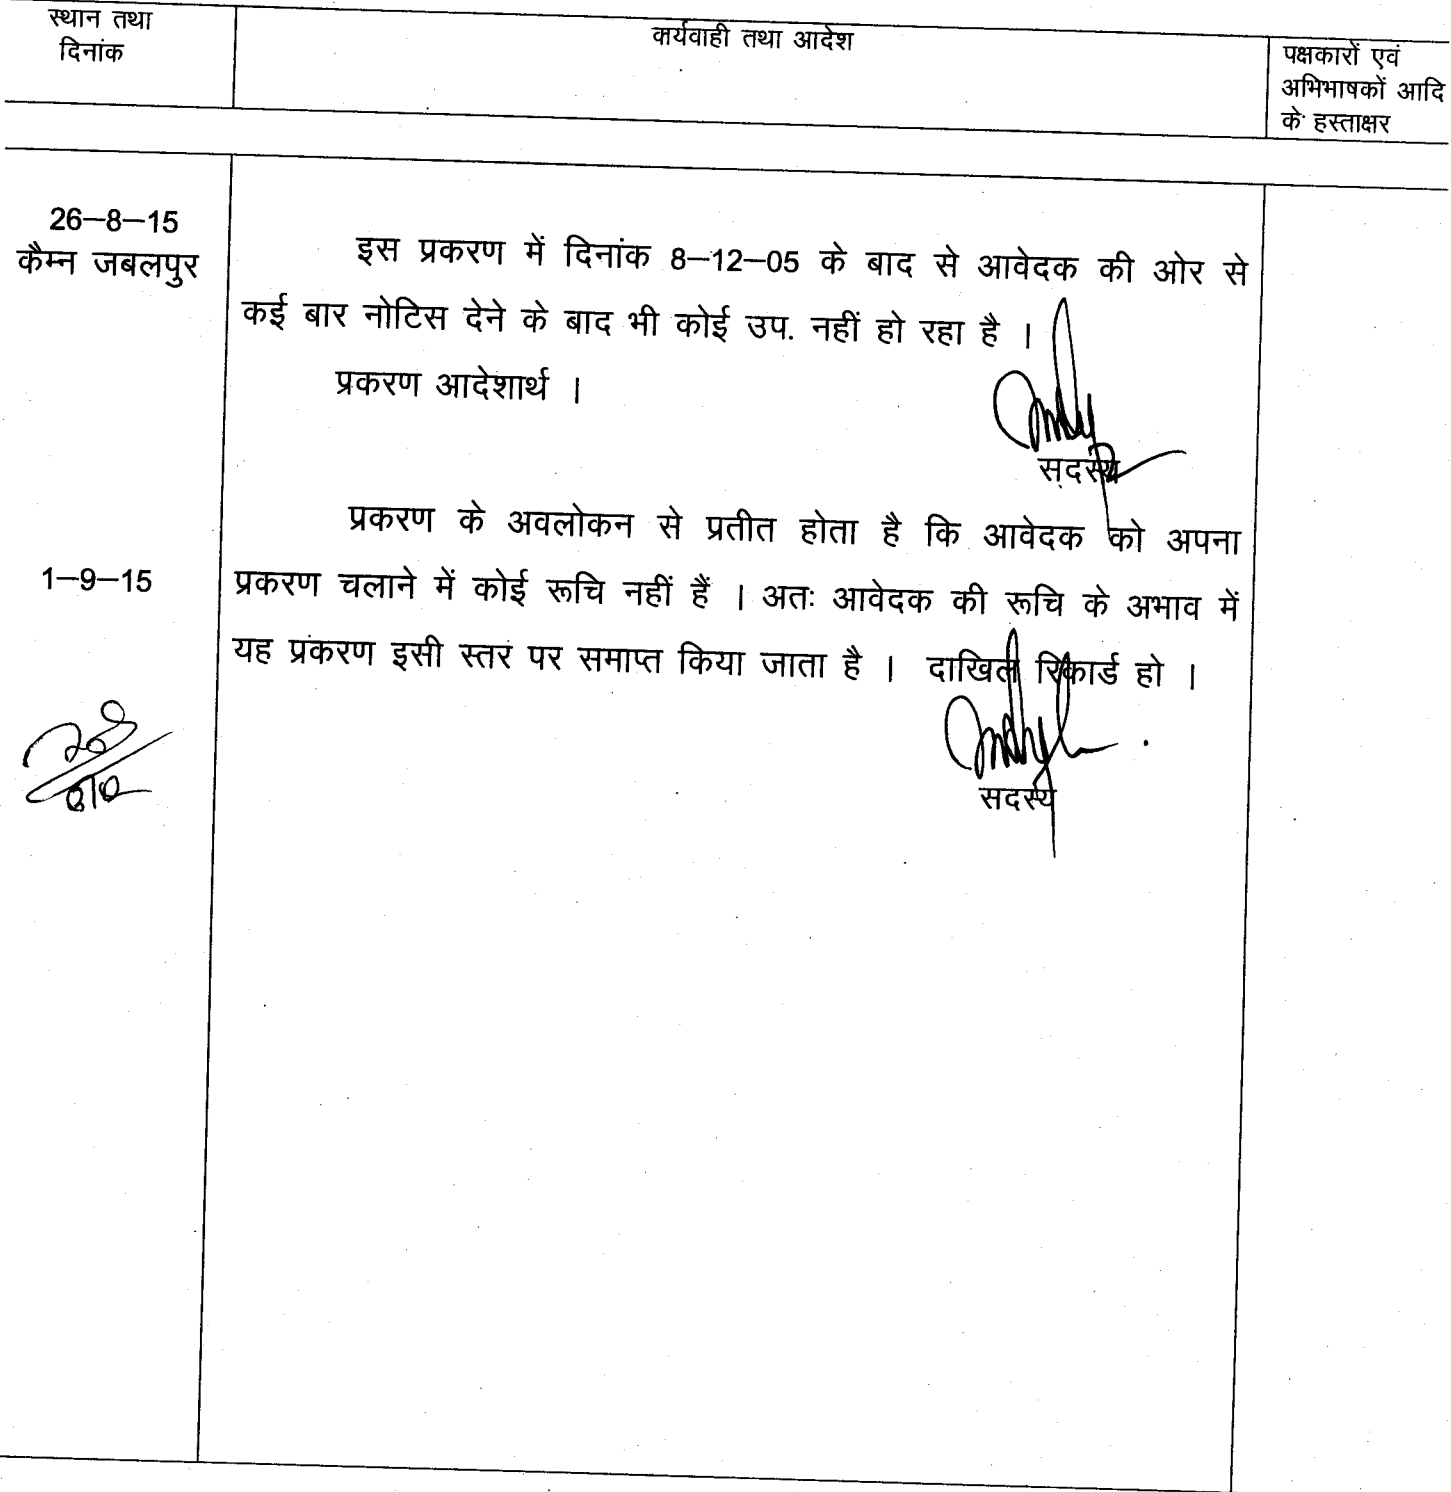 स्थान तथा
दिनांक
कार्यवाही तथा आदेश
पक्षकारों एवं
अभिभाषकों आदि
के हस्ताक्षर
26–8–15
कैम्न जबलपुर
इस प्रकरण में दिनांक 8–12–05 के बाद से आवेदक की ओर से
कई बार नोटिस देने के बाद भी कोई उप. नहीं हो रहा है ।
प्रकरण आदेशार्थ ।
सदस्य
1–9–15
प्रकरण के अवलोकन से प्रतीत होता है कि आवेदक को अपना
प्रकरण चलाने में कोई रूचि नहीं हैं । अतः आवेदक की रूचि के अभाव में
यह प्रकरण इसी स्तर पर समाप्त किया जाता है । दाखिल रिकार्ड हो ।
सदस्य